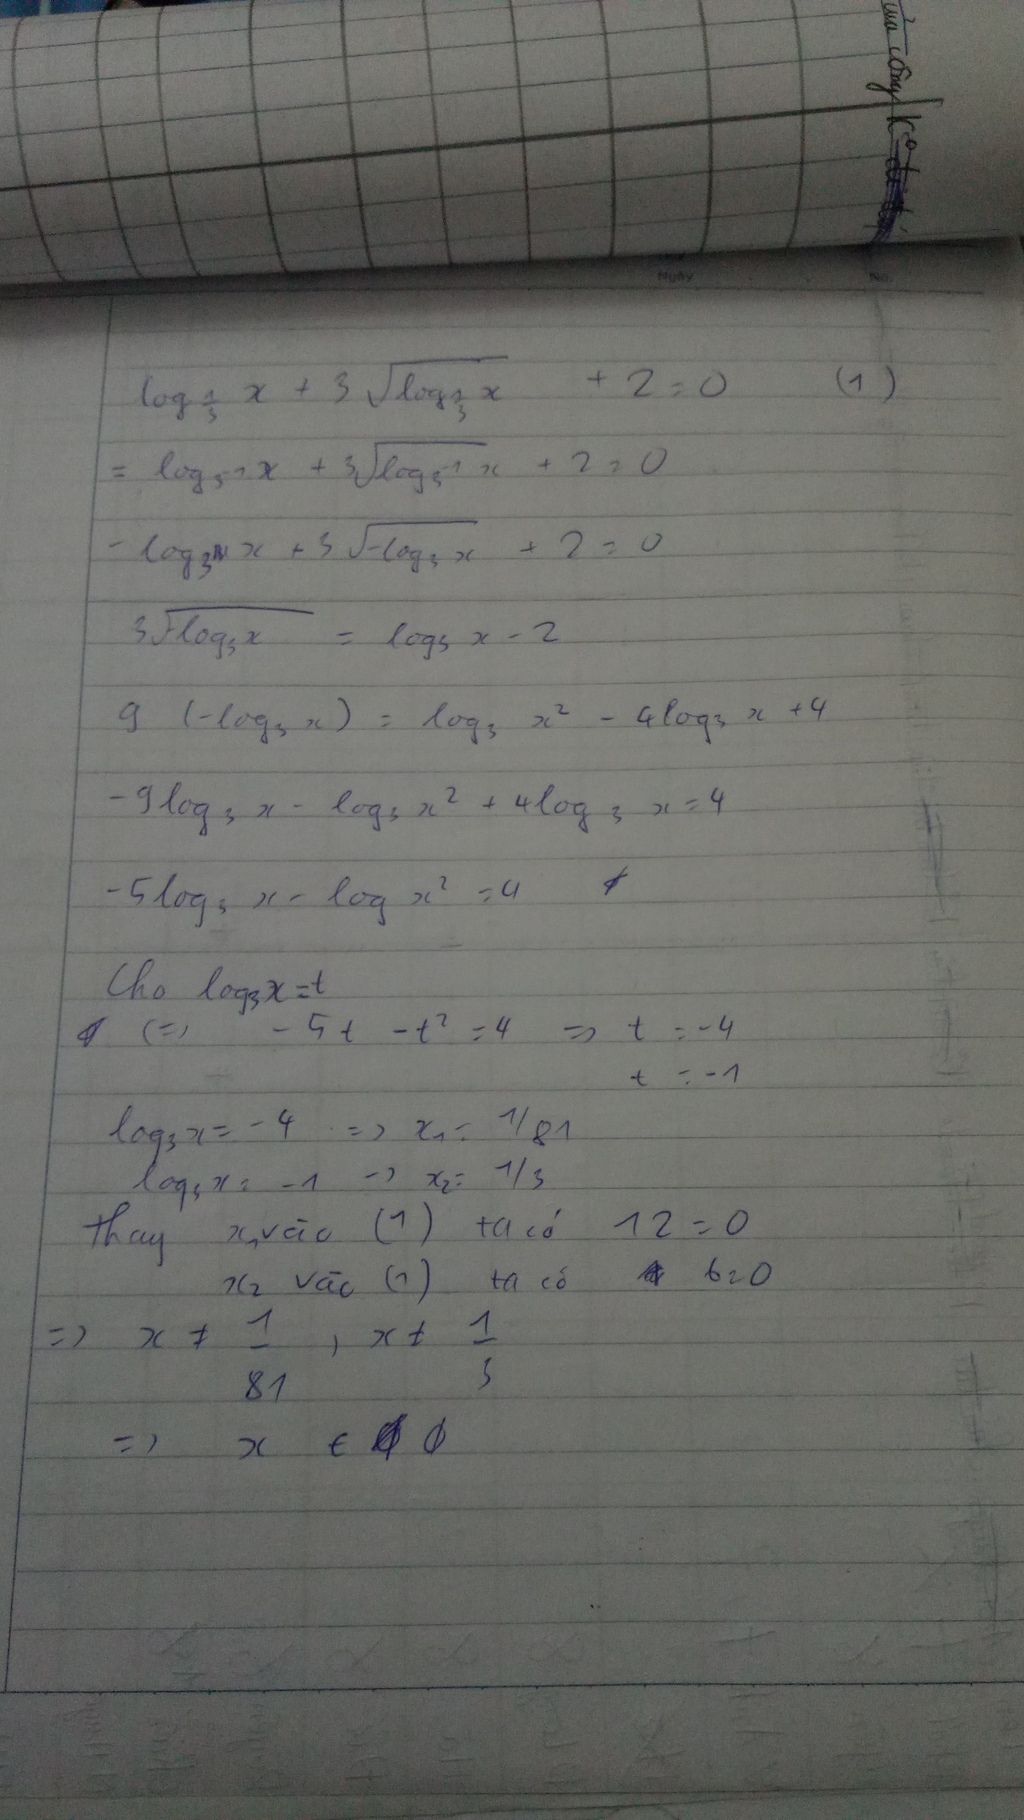 ma công K
Ngày No.
log_{1/3} x + 3√(log_{1/3} x) + 2 = 0 (1)
= log_{3^{-1}} x + 3√(log_{3^{-1}} x) + 2 = 0
- log_3 x + 3√(-log_3 x) + 2 = 0
3√(-log_3 x) = log_3 x - 2
9 (-log_3 x) = log_3 x² - 4log_3 x + 4
-9log_3 x - log_3 x² + 4log_3 x = 4
-5log_3 x - log x² = 4
Cho log_3 x = t
(=) -5t - t² = 4 => t = -4
t = -1
log_3 x = -4 => x_1 = 1/81
log_3 x = -1 -> x_2 = 1/3
thay x_1 vào (1) ta có 12 = 0
x_2 vào (1) ta có 6 = 0
=> x ≠ 1/81 , x ≠ 1/3
=> x ∈ ∅